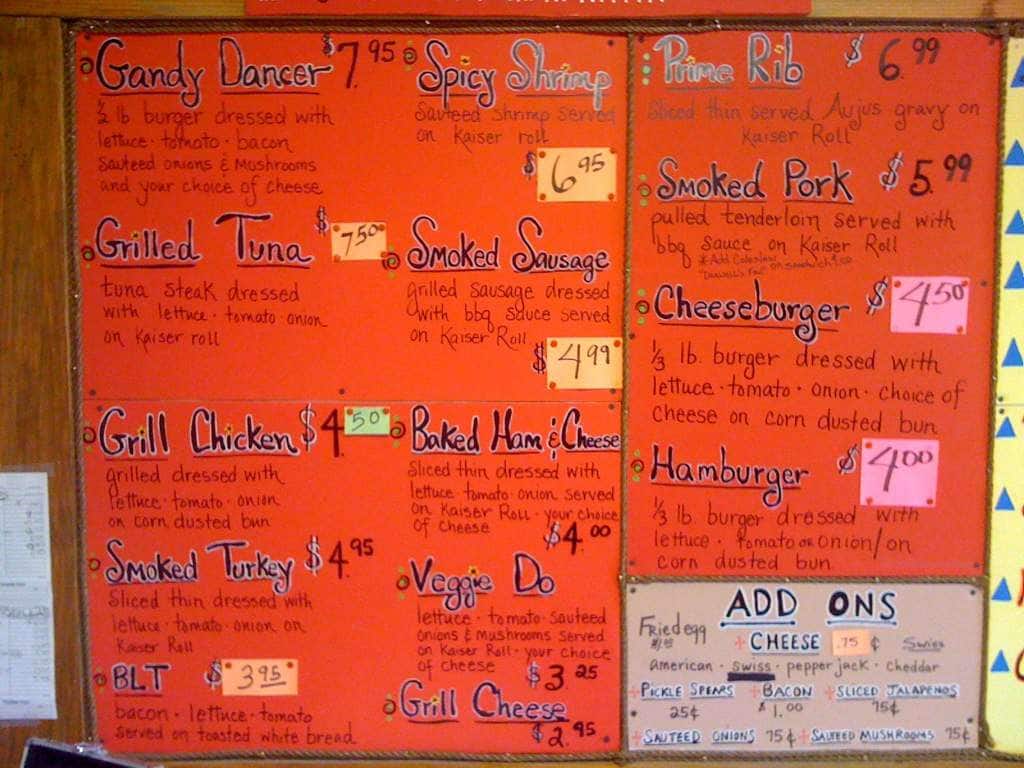 Gandy Dancer $7.95
½ lb burger dressed with
lettuce · tomato · bacon
sauteed onions & Mushrooms
and your choice of cheese
Grilled Tuna $7.50
tuna steak dressed
with lettuce · tomato · onion
on Kaiser roll
Grill Chicken $4.50
grilled dressed with
lettuce · tomato · onion
on corn dusted bun
Smoked Turkey $4.95
Sliced thin dressed with
lettuce · tomato · onion on
Kaiser Roll
BLT $3.95
bacon · lettuce · tomato
served on toasted white bread
Spicy Shrimp
Sauteed Shrimp served
on Kaiser roll
$6.95
Smoked Sausage
grilled sausage dressed
with bbq sauce served
on Kaiser Roll
$4.99
Baked Ham & Cheese
Sliced thin dressed with
lettuce · tomato · onion served
on Kaiser Roll · your choice
of cheese
$4.00
Veggie Do
lettuce · tomato · sauteed
onions & Mushrooms served
on Kaiser Roll · your choice
of cheese
$3.25
Grill Cheese
$2.95
Prime Rib $6.99
Sliced thin served Aujus gravy on
Kaiser Roll
Smoked Pork $5.99
pulled tenderloin served with
bbq sauce on Kaiser Roll
*Add Coleslaw
on sandwich
Cheeseburger $4.50
⅓ lb. burger dressed with
lettuce · tomato · onion · choice of
cheese on corn dusted bun
Hamburger $4.00
⅓ lb. burger dressed with
lettuce · tomato or onion/on
corn dusted bun
ADD ONS
Fried egg
+ CHEESE .75 ¢ Swiss
american · swiss · pepper jack · cheddar
+ PICKLE SPEARS + BACON + SLICED JALAPENOS
25¢ $1.00 75¢
+ SAUTEED ONIONS 75¢ + SAUTEED MUSHROOMS 75¢